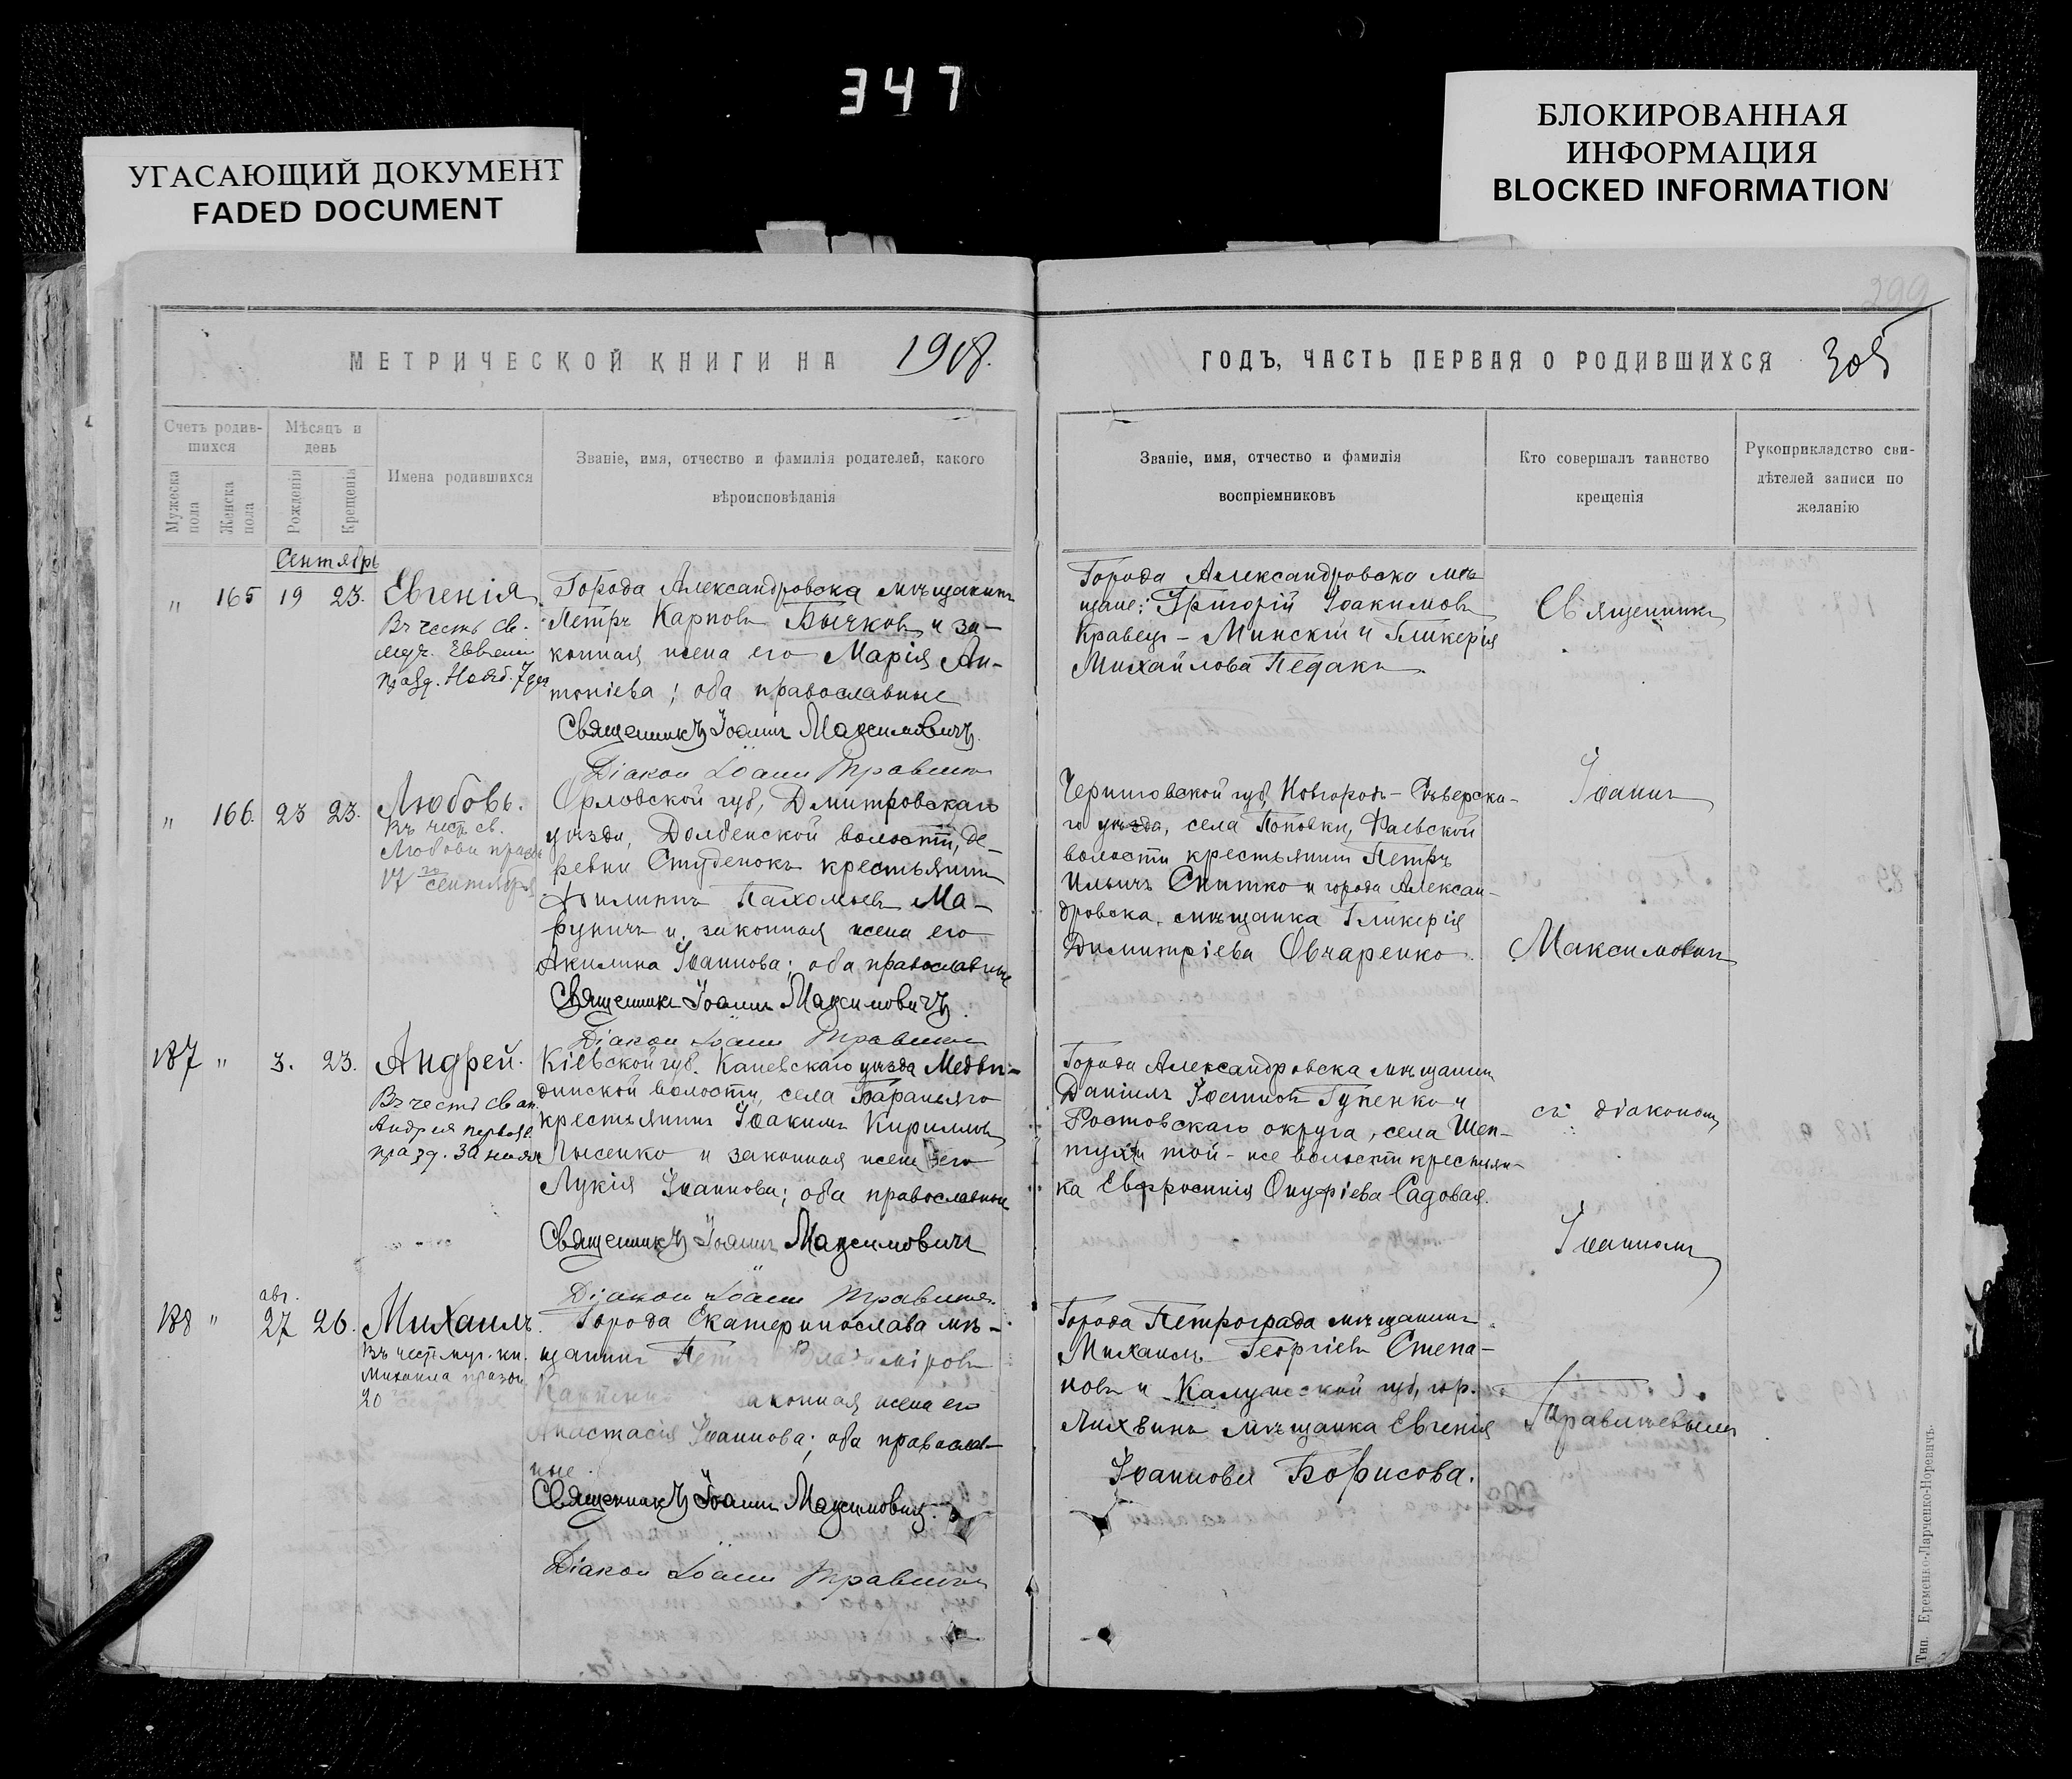 347
УГАСАЮЩИЙ ДОКУМЕНТ
FADED DOCUMENT
БЛОКИРОВАННАЯ
ИНФОРМАЦИЯ
BLOCKED INFORMATION
299
МЕТРИЧЕСКОЙ КНИГИ НА 1918.
Счетъ родив-
шихся
Мужеска
пола
Женска
пола
Мѣсяцъ и
день
Рожденія
Крещенія
Имена родившихся
Званіе, имя, отчество и фамилія родителей, какого
вѣроисповѣданія
Сентябрь
" 165 19 23. Евгенія
Въ честь св.
муч. Евгении
празд. Нояб. 7 дня
Города Александровска мѣщанинъ
Петръ Карповъ Бычковъ и за-
конная жена его Марія Ан-
тоніева; оба православные
Священникъ Іоаннъ Максимовичъ.
Діакон Іоанн
" 166. 23 23. Любовь.
Въ чест. св.
Любови празд.
17 сентября
Орловской губ., Дмитровскаго
уѣзда, Долбенской волости, де-
ревни Студенокъ крестьянинъ
Филиппъ Пахомовъ Ма-
фунинъ и законная жена его
Акилина Іоаннова; оба православные
Священникъ Іоаннъ Максимовичъ.
Діакон Іоанн
187 " 3. 23. Андрей.
Въ честь св. ап.
Андрея первозв.
празд. 30 нояб.
Кіевской губ. Каневскаго уѣзда Медви-
динской волости, села Бараньяго
крестьянинъ Іоакимъ Кирилловъ
Лысенко и законная жена его
Лукія Іоаннова; оба православные
Священникъ Іоаннъ Максимовичъ
Діакон Іоанн
авг.
188 " 27 26. Михаилъ.
Въ чест. муч. кн.
Михаила празд.
20
Города Екатеринослава мѣ-
щанинъ Петръ Владиміровъ
законная жена его
Анастасія Іоаннова; оба православ-
ные.
Священникъ Іоаннъ Максимовичъ.
Діакон Іоанн
ГОДЪ, ЧАСТЬ ПЕРВАЯ О РОДИВШИХСЯ 305
Званіе, имя, отчество и фамилія
воспріемниковъ
Кто совершалъ таинство
крещенія
Рукоприкладство сви-
дѣтелей записи по
желанію
Города Александровска мѣ-
щане: Григорій Іоакимовъ
Кравецъ-Минскій и Гликерія
Михайлова Педакъ
Черниговской губ, Новгородъ-Сѣверска-
го уѣзда, села Поповки,
волости крестьянинъ Петръ
Ильичъ Спитко и города Алексан-
дровска мѣщанка Гликерія
Димитріева Овчаренко.
Города Александровска мѣщанинъ
Даніилъ Іоанновъ Гупенко и
Ростовскаго округа, села Шеп-
тухи той-же волости крестьян-
ка Евфросинія Онуфріева Садовая.
Города Петрограда мѣщанинъ
Михаилъ Георгіевъ Степа-
новъ и Калужской губ, гор.
Лихвина мѣщанка Евгенія
Іоаннова Борисова.
Священникъ
Іоаннъ
Максимовичъ
съ діакономъ
Іоанномъ
Тип. Еременко-Ларченко-Норевичъ.